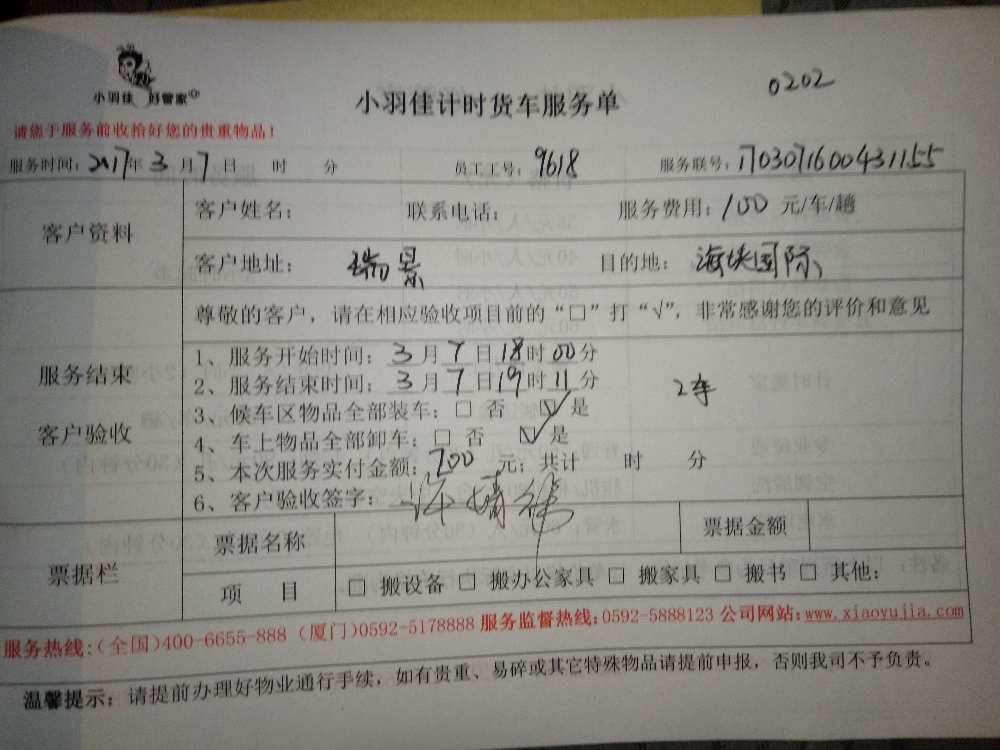 0202
小羽佳 好管家
小羽佳计时货车服务单
请您于服务前收拾好您的贵重物品！
服务时间：2017年3月7日 时 分 员工工号：9618 服务联号：170307160043 1155
客户资料
客户姓名： 联系电话： 服务费用：100元/车/趟
客户地址：瑞景 目的地：海峡国际
服务结束
客户验收
尊敬的客户，请在相应验收项目前的“□”打“√”，非常感谢您的评价和意见
1、服务开始时间：3月7日18时00分
2、服务结束时间：3月7日19时11分
2车
3、候车区物品全部装车：□ 否 ☑ 是
4、车上物品全部卸车：□ 否 ☑ 是
5、本次服务实付金额：200元；共计 时 分
6、客户验收签字：
票据栏
票据名称 票据金额
项 目 □ 搬设备 □ 搬办公家具 □ 搬家具 □ 搬书 □ 其他：
服务热线：(全国)400-6655-888 (厦门)0592-5178888 服务监督热线：0592-5888123 公司网站：www.xiaoyujia.com
温馨提示：请提前办理好物业通行手续，如有贵重、易碎或其它特殊物品请提前申报，否则我司不予负责。